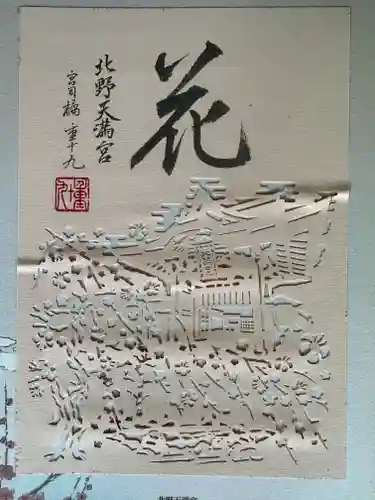 花
北野天満宮
宮司 橘 重十九
重十九
北野天満宮